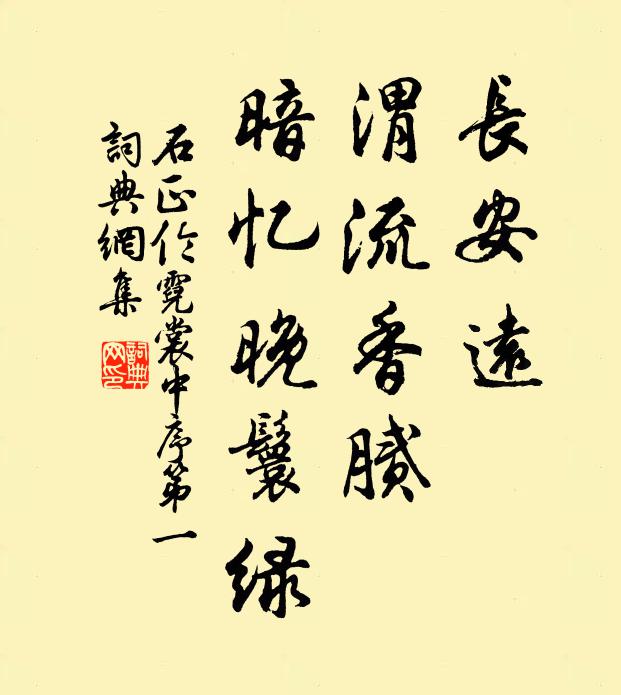 長安遠
渭流香膩
暗忆晚鬟绿
石正伦霓裳中序第一
詞典網集
詞典网印